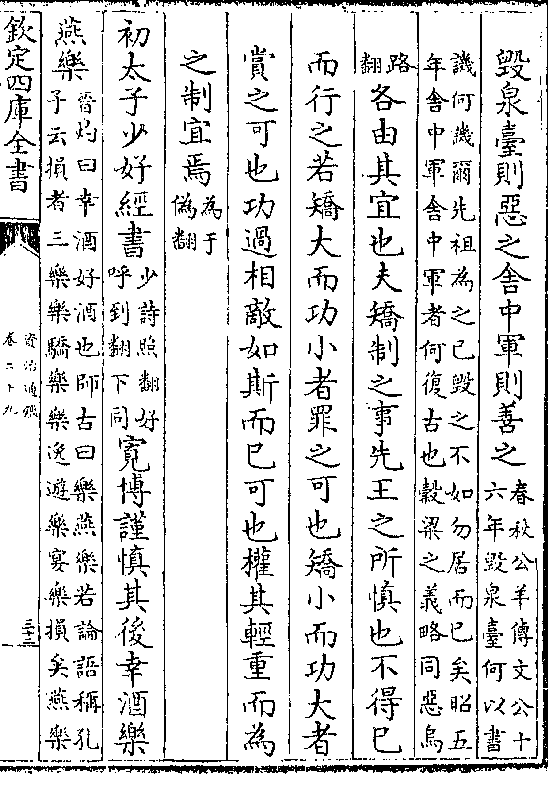 毀泉臺則惡之舍中軍則善之春秋公羊傳文公十六年毀泉臺何以書
譏何譏爾先祖為之已毀之不如勿居而已矣昭五年舍中軍舍中軍者何復古也穀梁之義略同惡烏
路翻各由其宜也夫矯制之事先王之所慎也不得已
而行之若矯大而功小者罪之可也矯小而功大者
賞之可也功過相敵如斯而已可也權其輕重而為
之制宜焉為于偽翻
初太子少好經書少詩照翻好呼到翻下同寬博謹慎其後幸酒樂
燕樂晉灼曰幸酒好酒也師古曰樂燕樂若論語稱孔子云損者三樂樂驕樂樂逸遊樂宴樂損矣燕樂
欽定四庫全書
資治通鑑
卷二十九
三十三